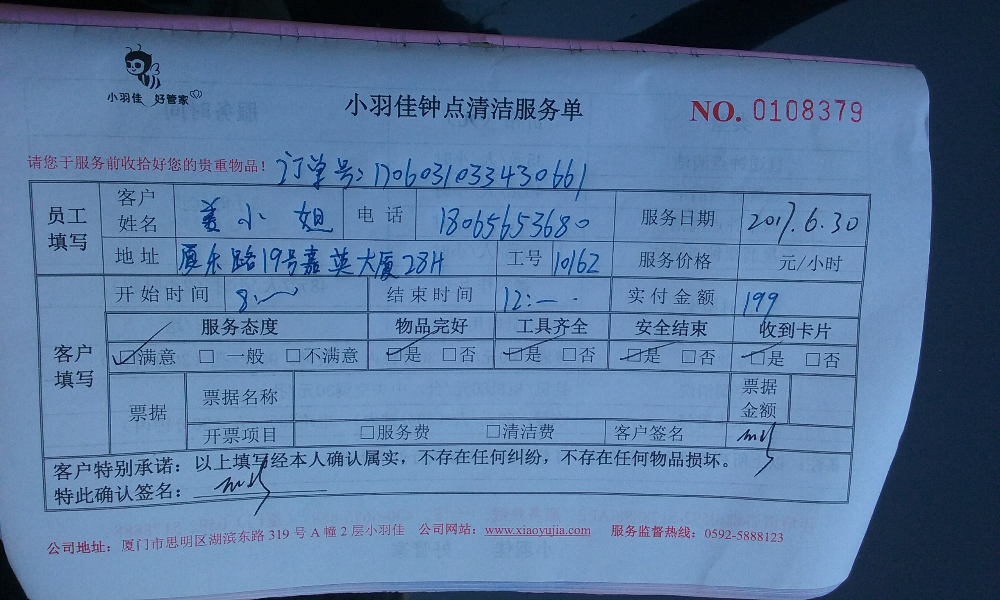 小羽佳 好管家
小羽佳钟点清洁服务单 NO. 0108379
请您于服务前收拾好您的贵重物品! 订单号:1706031033430661
员工填写 客户姓名 姜小姐 电话 18065653680 服务日期 2017.6.30
地址 厦禾路19号嘉英大厦28H 工号 10162 服务价格 元/小时
开始时间 8: 结束时间 12: 实付金额 199
客户填写 服务态度 物品完好 工具齐全 安全结束 收到卡片
☑满意 □一般 □不满意 ☑是 □否 ☑是 □否 ☑是 □否 ☑是 □否
票据 票据名称 票据金额
开票项目 □服务费 □清洁费 客户签名
客户特别承诺:以上填写经本人确认属实,不存在任何纠纷,不存在任何物品损坏。
特此确认签名:
公司地址:厦门市思明区湖滨东路319号A幢2层小羽佳 公司网站:www.xiaoyujia.com 服务监督热线:0592-5888123